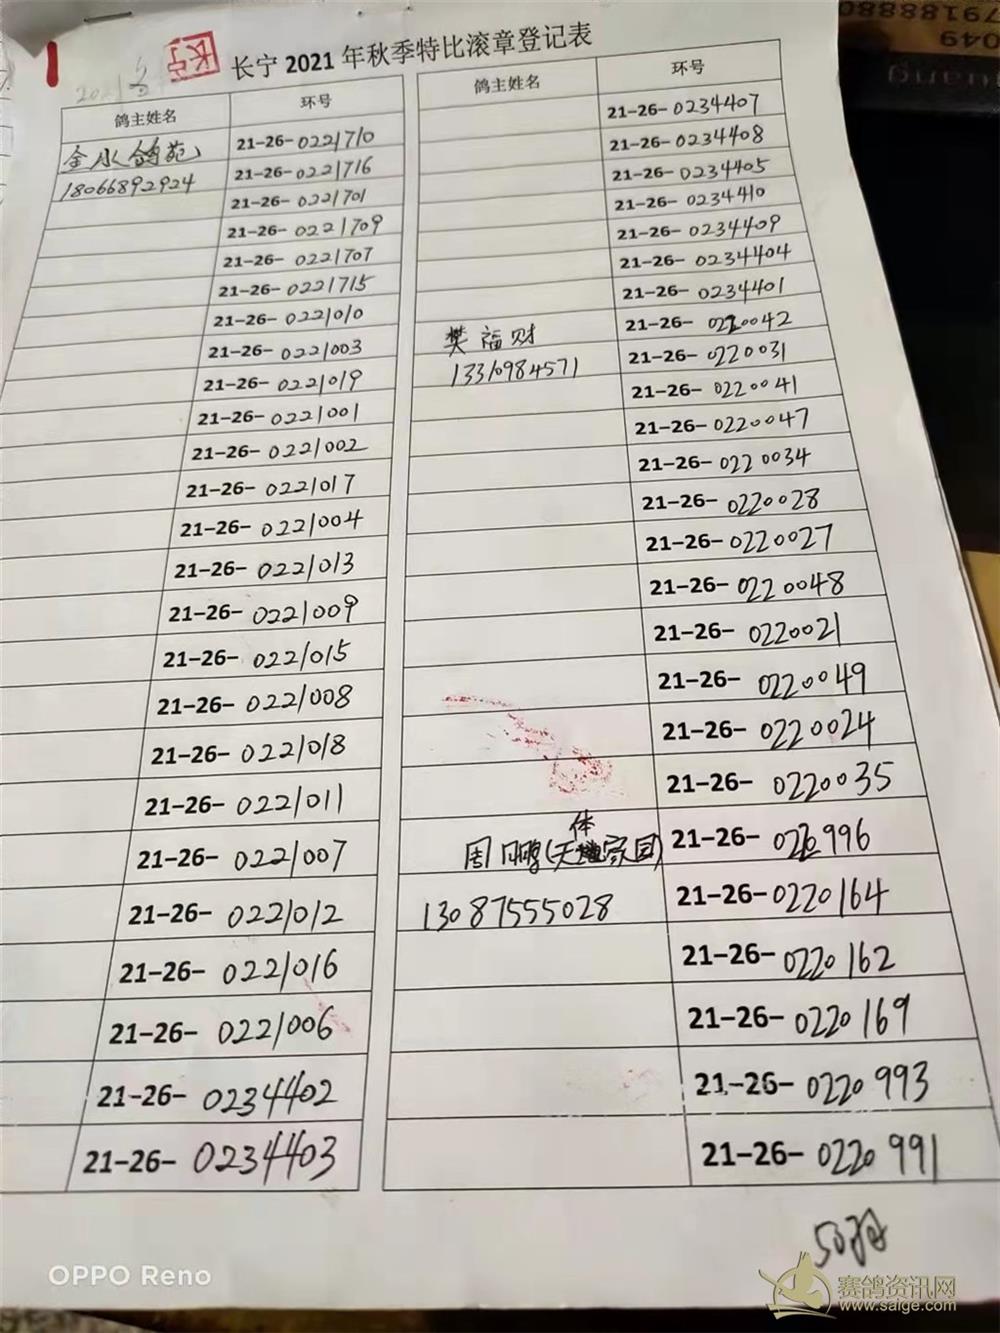 长宁 2021 年秋季特比滚章登记表
长宁
鸽主姓名 环号
金水鸽苑 21-26-0221710
18066892924 21-26-0221716
21-26-0221701
21-26-0221709
21-26-0221707
21-26-0221715
21-26-0221010
21-26-0221003
21-26-0221019
21-26-0221001
21-26-0221002
21-26-0221017
21-26-0221004
21-26-0221013
21-26-0221009
21-26-0221015
21-26-0221008
21-26-0221018
21-26-0221011
21-26-0221007
21-26-0221012
21-26-0221016
21-26-0221006
21-26-0234402
21-26-0234403
鸽主姓名 环号
21-26-0234407
21-26-0234408
21-26-0234405
21-26-0234410
21-26-0234409
21-26-0234404
21-26-0234401
樊福财 21-26-0220042
13310984571 21-26-0220031
21-26-0220041
21-26-0220047
21-26-0220034
21-26-0220028
21-26-0220027
21-26-0220048
21-26-0220021
21-26-0220049
21-26-0220024
21-26-0220035
体
周鹏(天家园) 21-26-0220996
13087555028 21-26-0220164
21-26-0220162
21-26-0220169
21-26-0220993
21-26-0220991
50羽
OPPO Reno
赛鸽资讯网
www.saige.com
7918880
049
uang